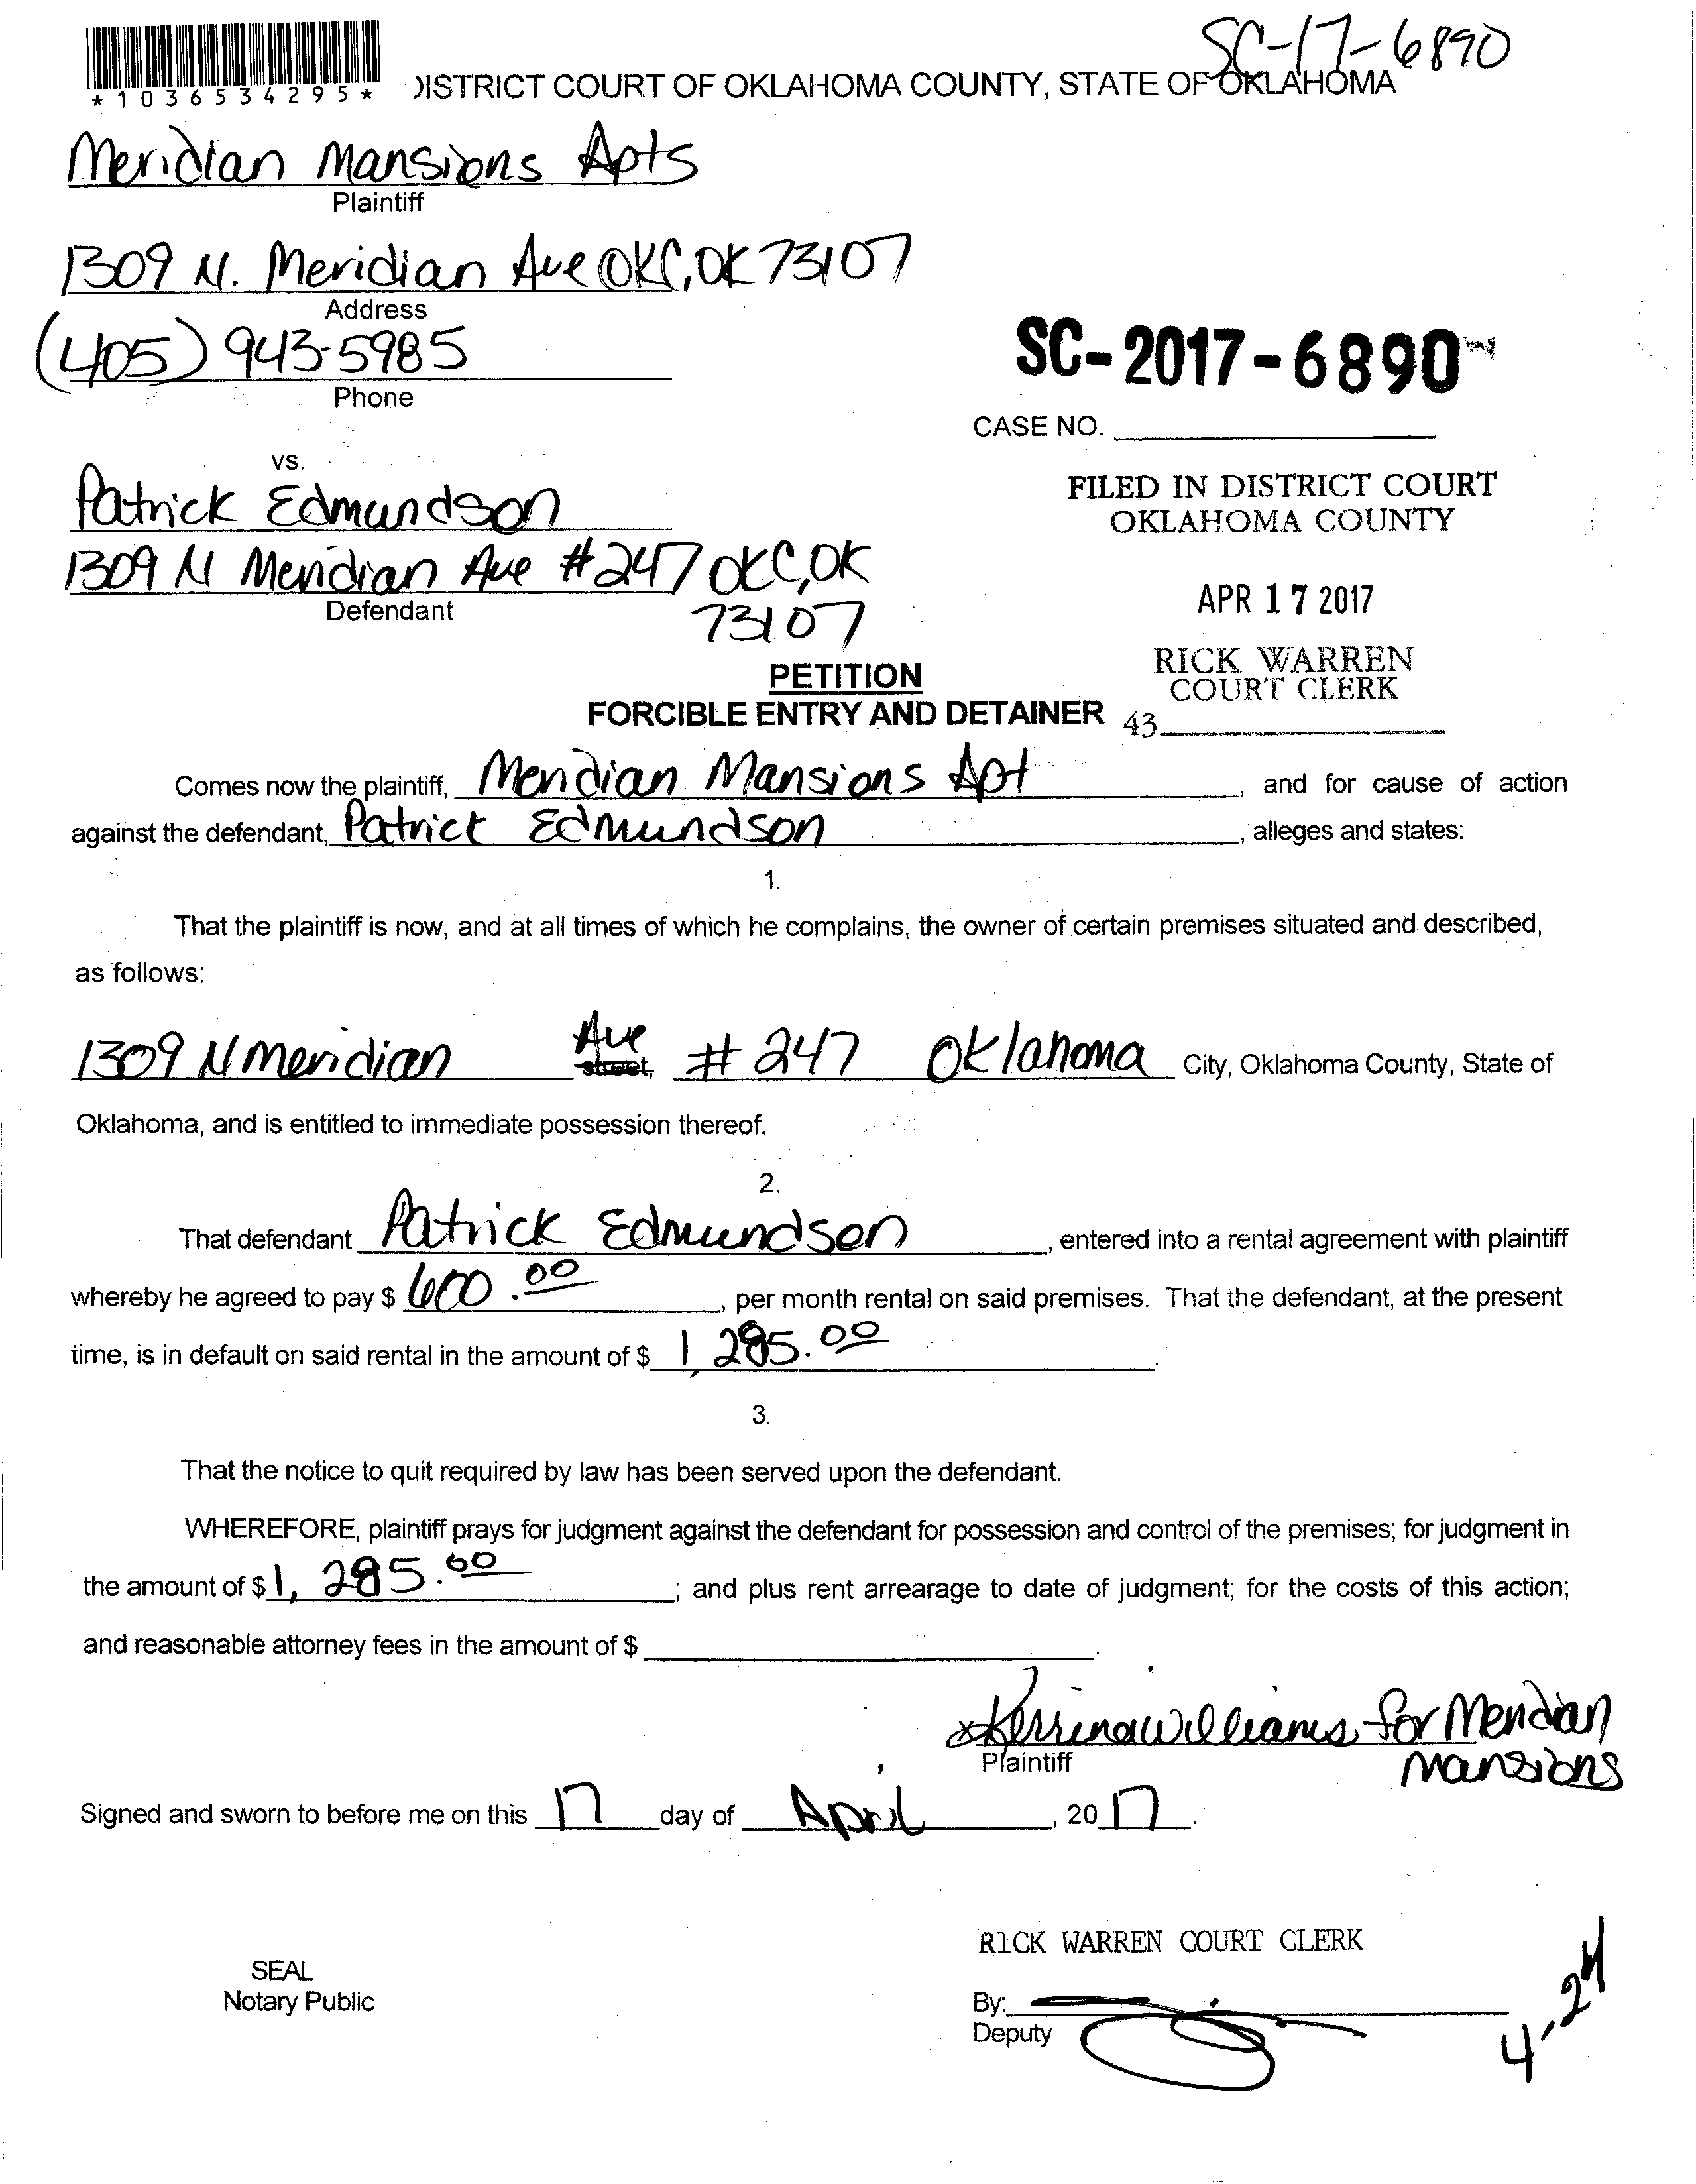 SC-17-6890
*1036534295*
DISTRICT COURT OF OKLAHOMA COUNTY, STATE OF OKLAHOMA
Meridian Mansions Apts
Plaintiff
1309 N. Meridian Ave OKC, OK 73107
Address
(405) 943-5985
Phone
SC-2017-6890
CASE NO.
vs.
Patrick Edmundson
1309 N Meridian Ave #247 OKC, OK
73107
Defendant
FILED IN DISTRICT COURT
OKLAHOMA COUNTY
APR 17 2017
RICK WARREN
COURT CLERK
43
PETITION
FORCIBLE ENTRY AND DETAINER
Comes now the plaintiff, Meridian Mansions Apt, and for cause of action
against the defendant, Patrick Edmundson, alleges and states:
1.
That the plaintiff is now, and at all times of which he complains, the owner of certain premises situated and described,
as follows:
1309 N Meridian Ave street, # 247 Oklahoma City, Oklahoma County, State of
Oklahoma, and is entitled to immediate possession thereof.
2.
That defendant Patrick Edmundson, entered into a rental agreement with plaintiff
whereby he agreed to pay $ 600.00, per month rental on said premises. That the defendant, at the present
time, is in default on said rental in the amount of $ 1,285.00.
3.
That the notice to quit required by law has been served upon the defendant.
WHEREFORE, plaintiff prays for judgment against the defendant for possession and control of the premises; for judgment in
the amount of $ 1,285.00; and plus rent arrearage to date of judgment; for the costs of this action;
and reasonable attorney fees in the amount of $ .
x Kerrina Williams for Meridian
Mansions
Plaintiff
Signed and sworn to before me on this 17 day of April, 2017.
RICK WARREN COURT CLERK
SEAL
Notary Public
By:
Deputy
4-24